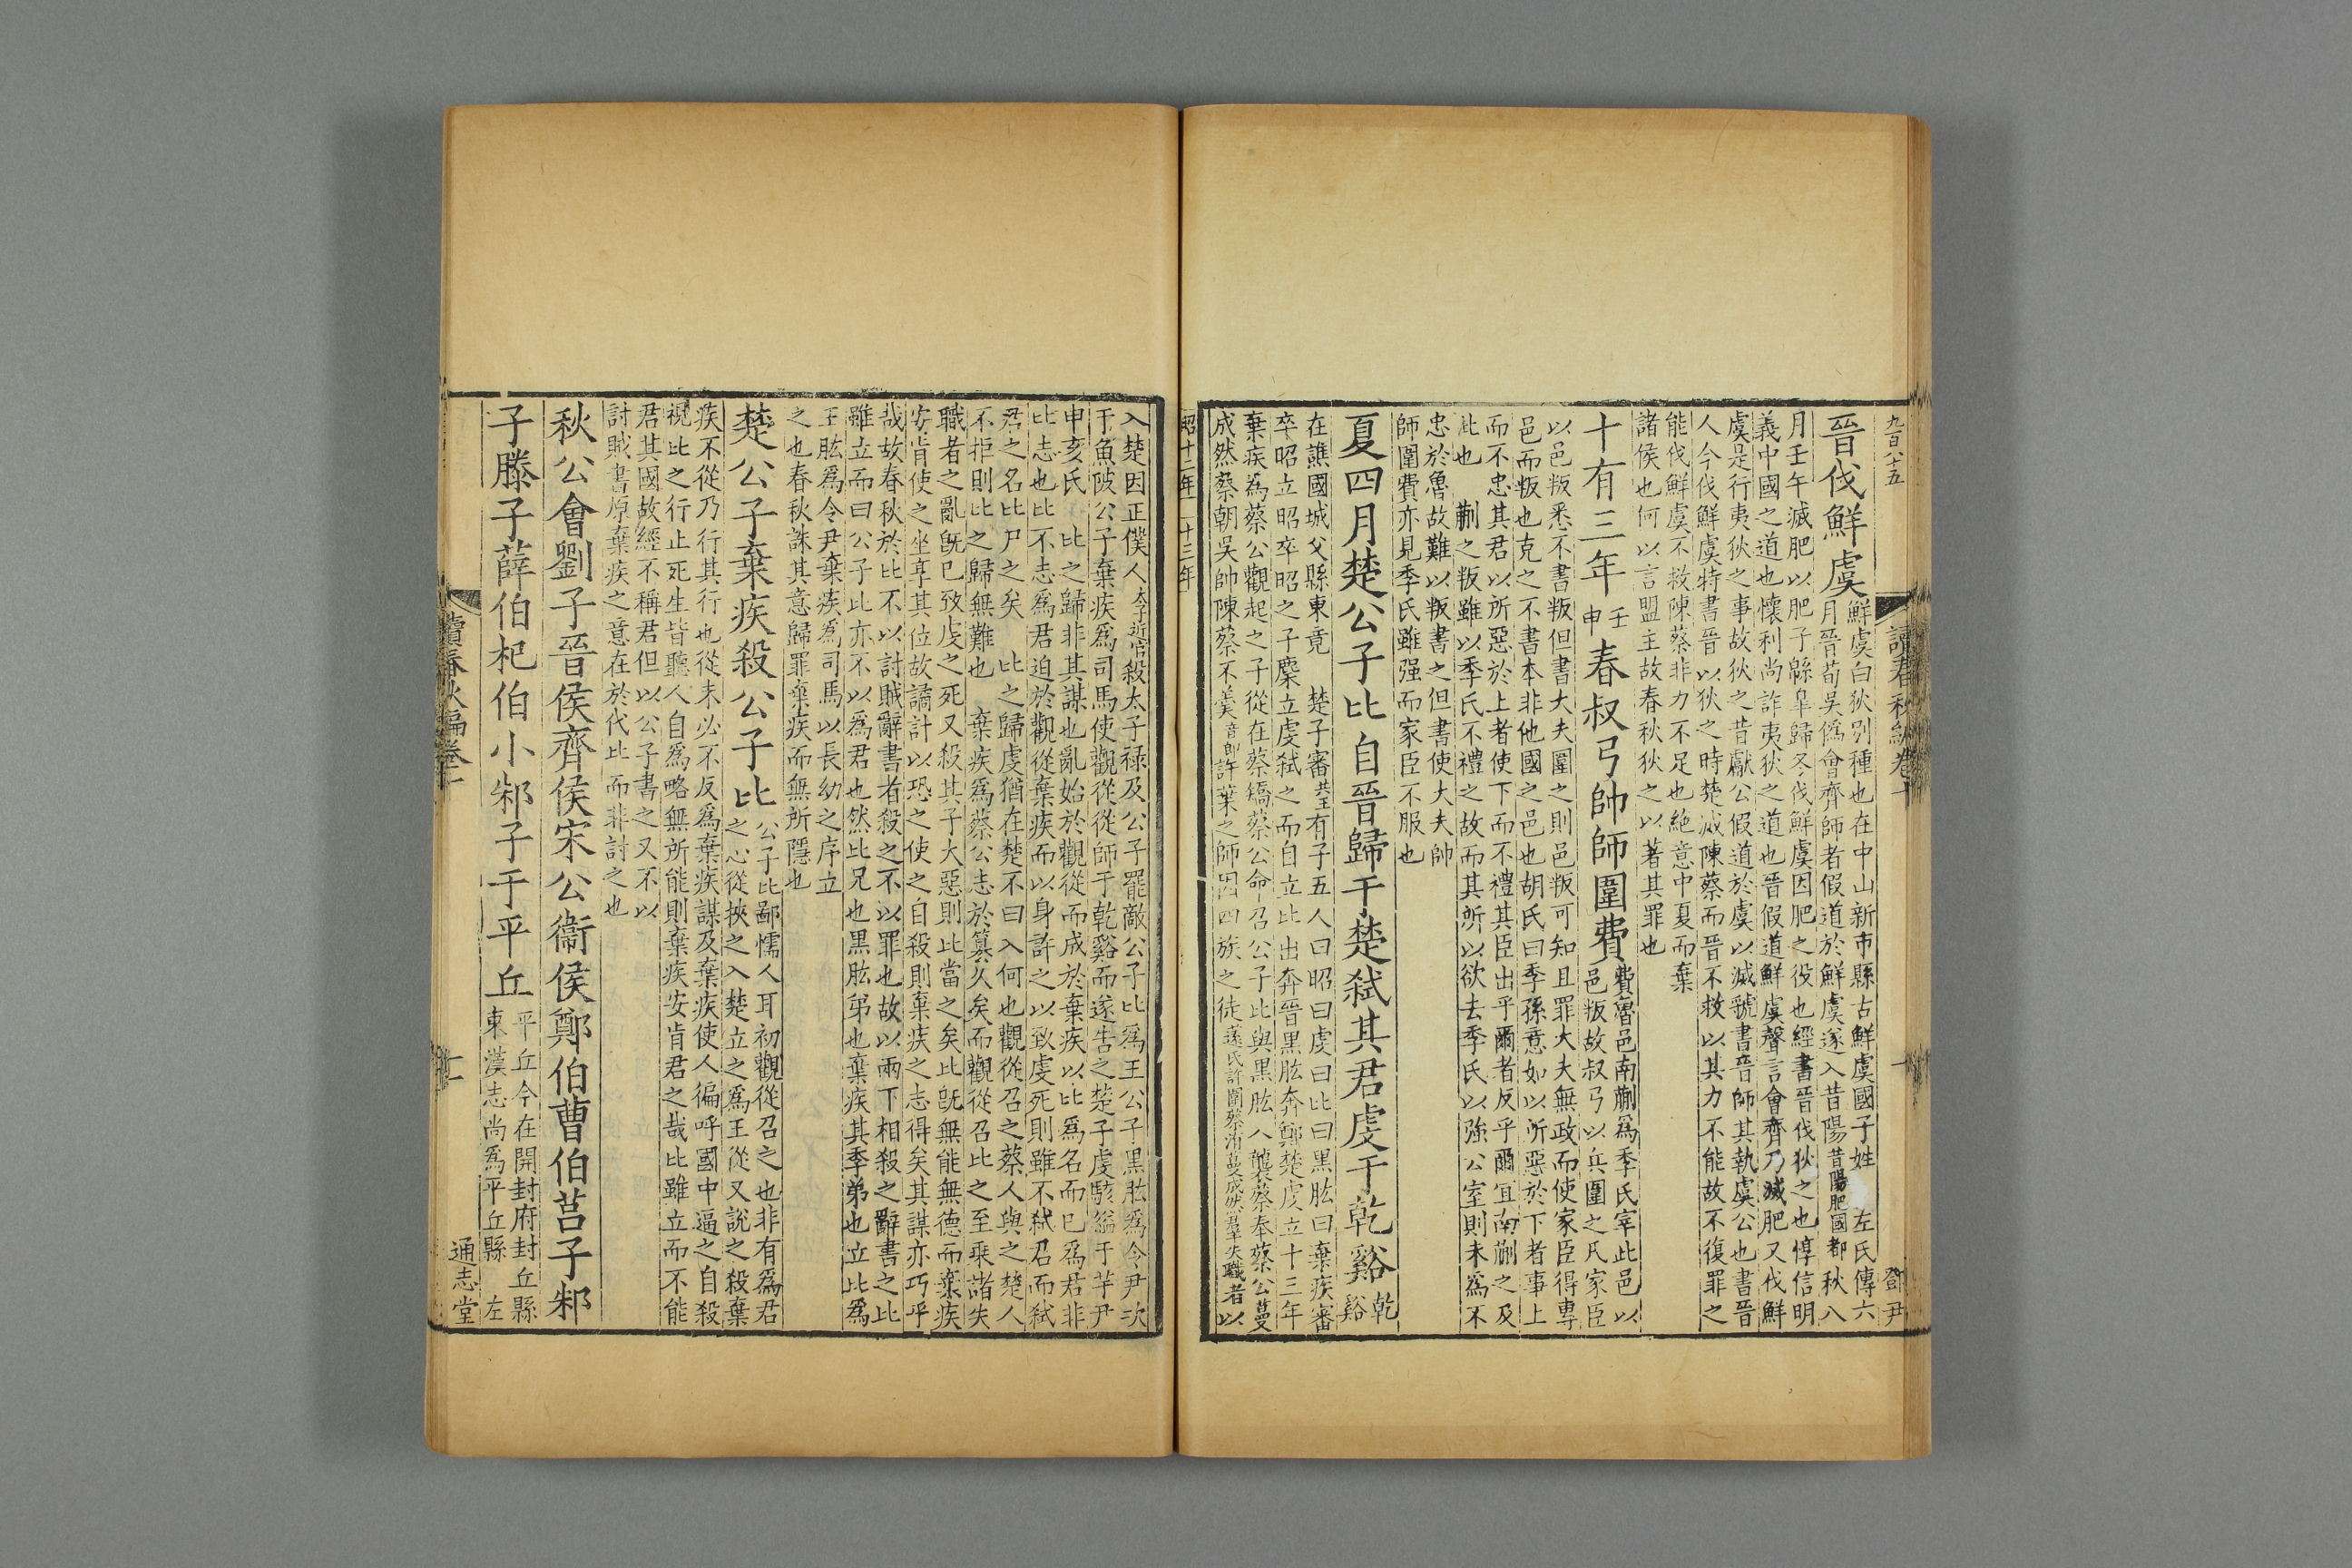 九百八十五
讀春秋編卷十
十
鄧尹
晉伐鮮虞鮮虞白狄别種也在中山新市縣古鮮虞國子姓 左氏傳六
月晉荀吳僞會齊師者假道於鮮虞遂入昔陽昔陽肥國都秋八
月壬午滅肥以肥子緜皐歸冬伐鮮虞因肥之役也經書晉伐狄之也惇信明
義中國之道也懷利尚詐夷狄之道也晉假道鮮虞聲言會齊乃滅肥又伐鮮
虞是行夷狄之事故狄之昔獻公假道於虞以滅虢書晉師其執虞公也書晉
人今伐鮮虞特書晉以狄之時楚滅陳蔡而晉不救以其力不能故不復罪之
能伐鮮虞不救陳蔡非力不足也絶意中夏而棄
諸侯也何以言盟主故春秋狄之以著其罪也
十有三年壬申春叔弓帥師圍費費魯邑南蒯爲季氏宰此邑以
邑叛故叔弓以兵圍之凡家臣
以邑叛悉不書叛但書大夫圍之則邑叛可知且罪大夫無政而使家臣得專
邑而叛也克之不書本非他國之邑也胡氏曰季孫意如以所惡於下者事上
而不忠其君以所惡於上者使下而不禮其臣出乎爾者反乎爾宜南蒯之及
此也 蒯之叛雖以季氏不禮之故而其所以欲去季氏以強公室則未爲不
忠於魯故難以叛書之但書使大夫帥
師圍費亦見季氏雖强而家臣不服也
夏四月楚公子比自晉歸于楚弑其君虔于乾谿乾谿
在譙國城父縣東竟 楚子審共王有子五人曰昭曰虔曰比曰黑肱曰棄疾審
卒昭立昭卒昭之子麇立虔弑之而自立比出奔晉黑肱奔鄭楚虔立十三年
棄疾爲蔡公觀起之子從在蔡矯蔡公命召公子比與黑肱入襲蔡奉蔡公蔓
成然蔡朝吳帥陳蔡不羮音郎許葉之師因四族之徒薳氏許圍蔡洧蔓成然羣失職者以
昭十二年 十三年
入楚因正僕人太子近官殺太子祿及公子罷敵公子比爲王公子黑肱爲令尹次
于魚陂公子棄疾爲司馬使觀從從師于乾谿而遂告之楚子虔駭縊于芋尹
申亥氏 比之歸非其謀也亂始於觀從而成於棄疾以比爲名而已爲君非
比志也比不志爲君迫於觀從棄疾而以身許之以致虔死則雖不弑召而弑
君之名比尸之矣 比之歸虔猶在楚不曰入何也觀從召之蔡人與之楚人
不拒則比之歸無難也 棄疾爲蔡公志於簒久矣而觀從召比之至乘諸失
職者之亂旣已致虔之死又殺其子大惡則比當之矣比旣無能無德而棄疾
安肯使之坐享其位故譎計以恐之使之自殺則棄疾之志得矣其謀亦巧乎
哉故春秋於比不以討賊辭書者殺之不以罪也故以兩下相殺之辭書之比
雖立而曰公子比亦不以爲君也然比兄也黑肱弟也棄疾其季弟也立比爲
王肱爲令尹棄疾爲司馬以長幼之序立
之也春秋誅其意歸罪棄疾而無所隱也
楚公子棄疾殺公子比公子比鄙懦人耳初觀從召之也非有爲君
之心從挾之入楚立之爲王從又說之殺棄
疾不從乃行其行也從未必不反爲棄疾謀及棄疾使人徧呼國中逼之自殺
視比之行止死生皆聽人自爲略無所能則棄疾安肯君之哉比雖立而不能
君其國故經不稱君但以公子書之又不以
討賊書原棄疾之意在於代比而非討之也
秋公會劉子晉侯齊侯宋公衞侯鄭伯曹伯莒子邾
子滕子薛伯杞伯小邾子于平丘平丘今在開封府封丘縣
東漢志尚爲平丘縣 左
讀春秋編卷十
十一
通志堂